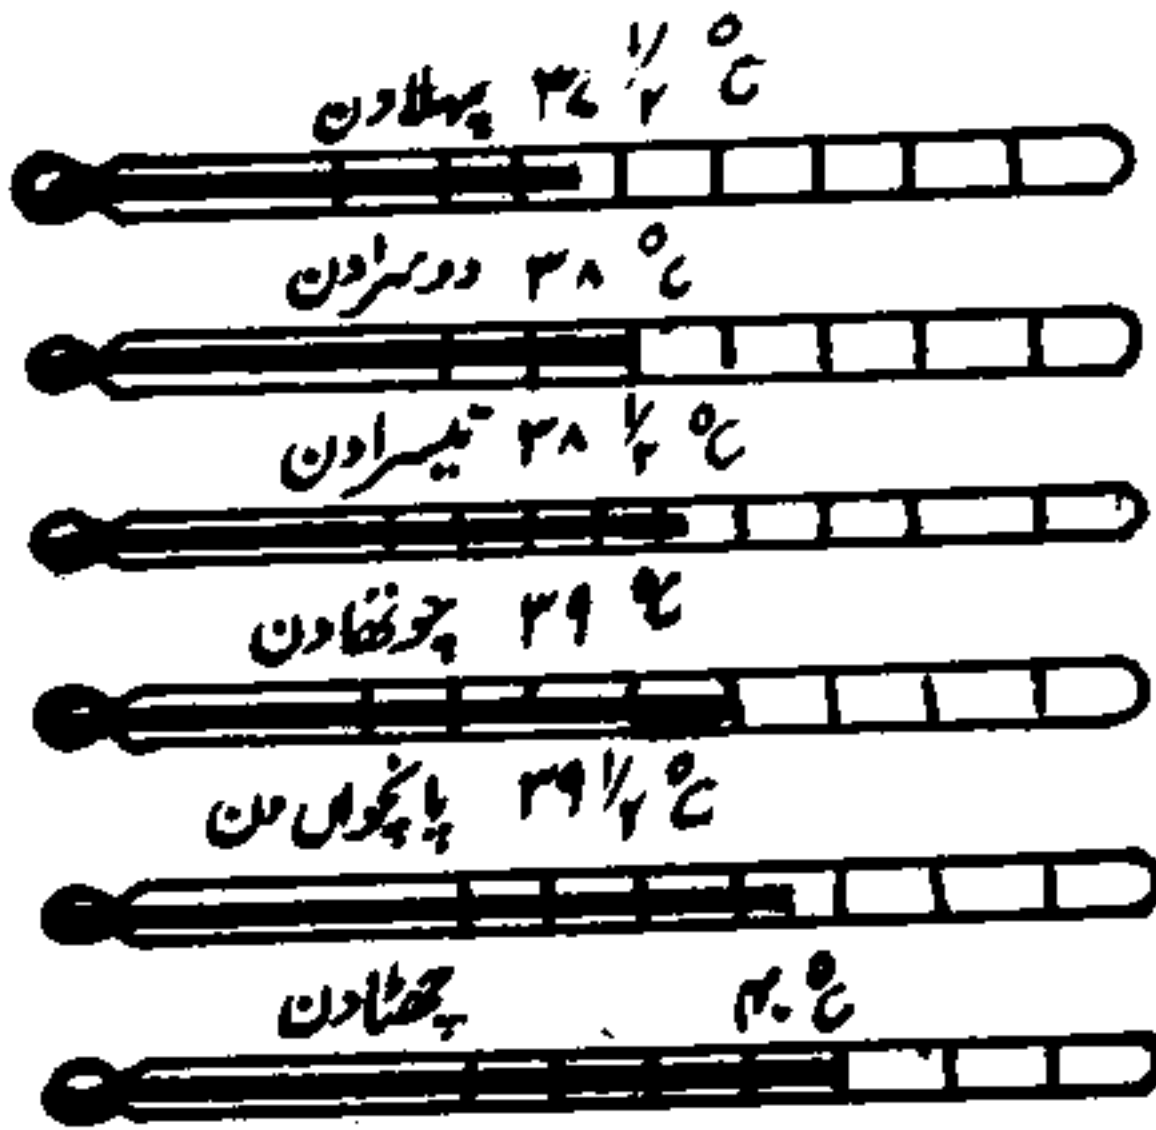 پہلا دن ۳۷ ۱/۲ °C
دوسرا دن ۳۸ °C
تیسرا دن ۳۸ ۱/۲ °C
چوتھا دن ۳۹ °C
پانچواں دن ۳۹ ۱/۲ °C
چھٹا دن ۴۰ °C